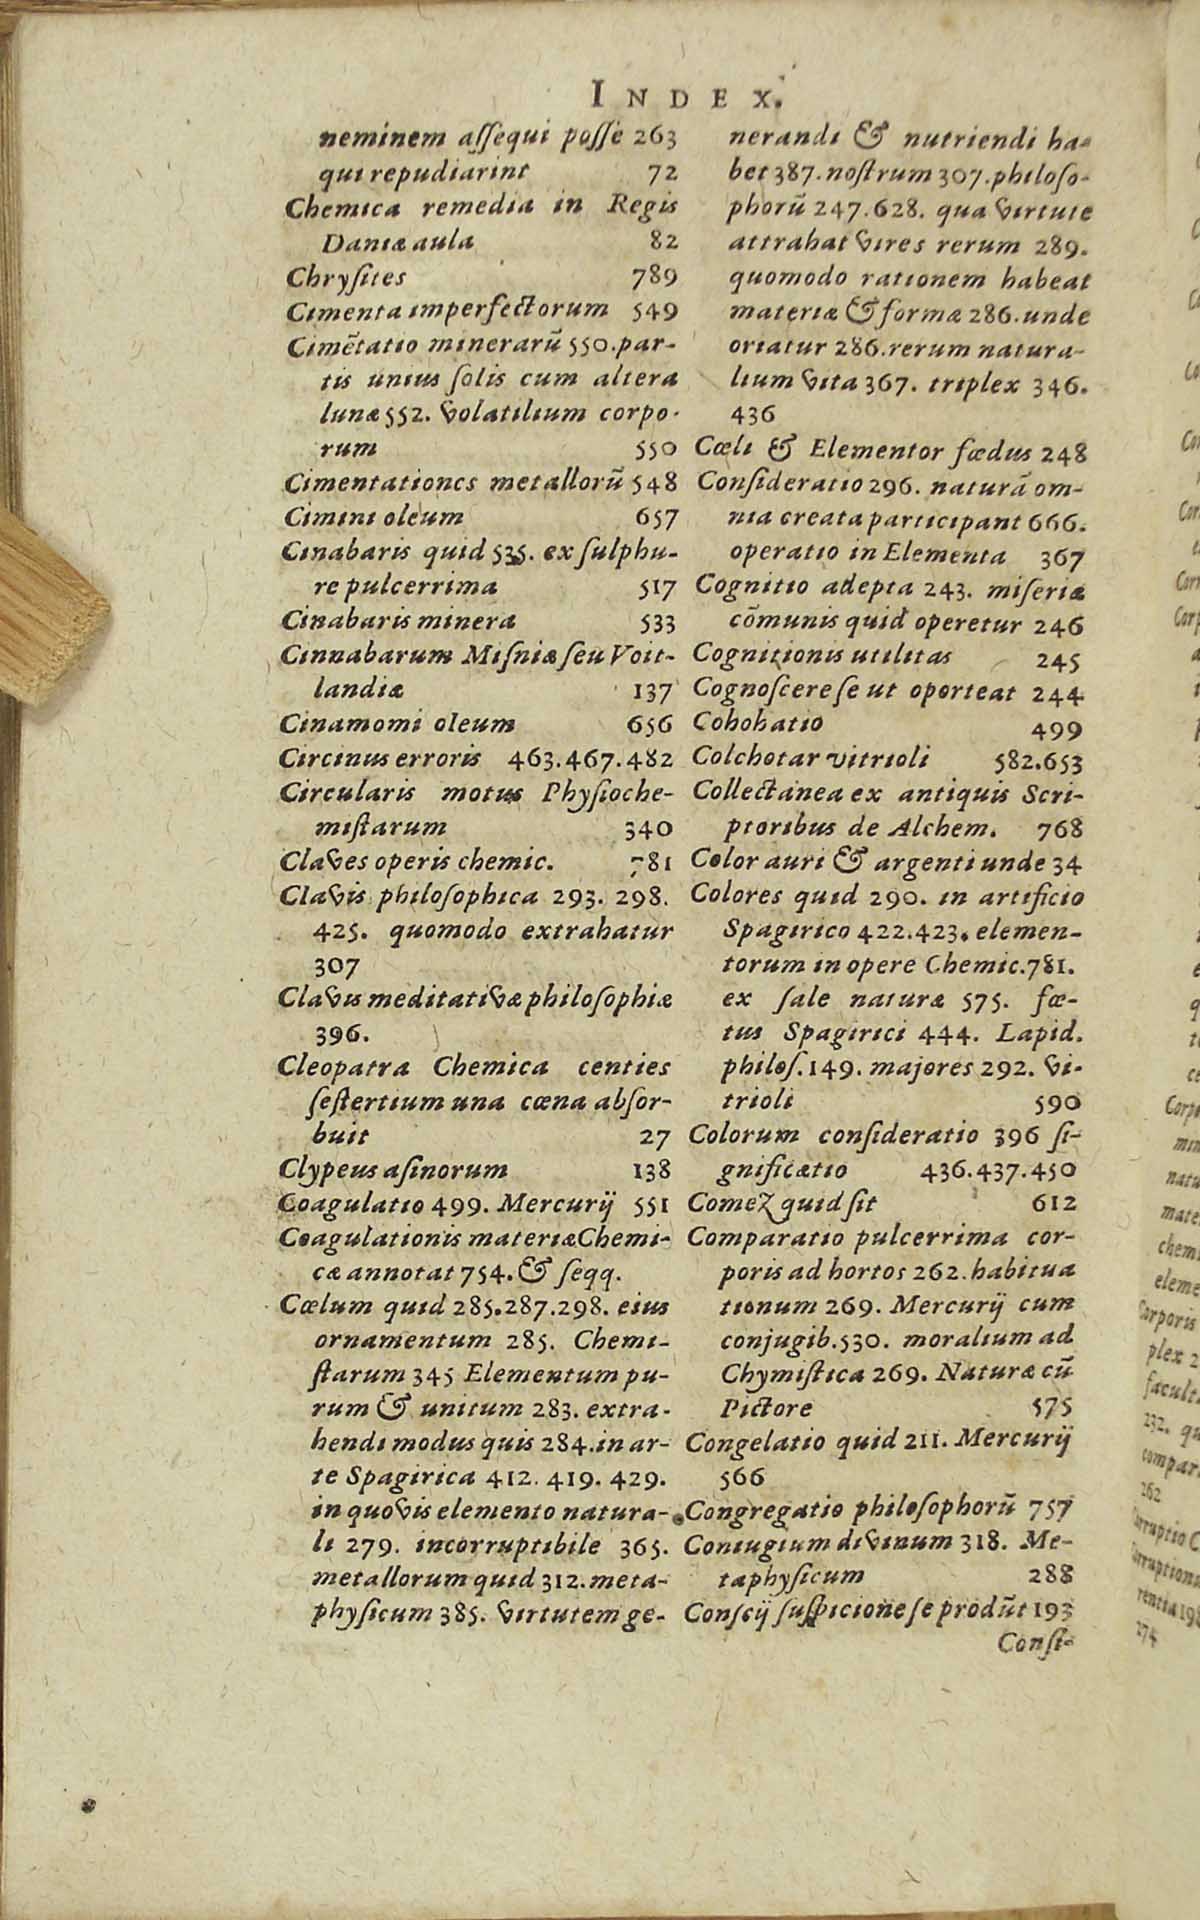 INDEX.
neminem aſſequi poſſe 263
qui repudiarint 72
Chemica remedia in Regis
Daniæ aula 82
Chryſites 789
Cimenta imperfectorum 549
Cimētatio minerarū 550. par-
tis unius ſolis cum altera
lunæ 552. volatilium corpo-
rum 550
Cimentationes metallorū 548
Cimini oleum 657
Cinabaris quid 535. ex ſulphu-
re pulcerrima 517
Cinabaris minera 533
Cinnabarum Miſniæ ſeu Voit-
landiæ 137
Cinamomi oleum 656
Circinus erroris 463.467.482
Circularis motus Phyſioche-
miſtarum 340
Claves operis chemic. 781
Clavis philoſophica 293. 298.
425. quomodo extrahatur
307
Clavis meditativæ philoſophiæ
396.
Cleopatra Chemica centies
ſeſtertium una cœna abſor-
buit 27
Clypeus aſinorum 138
Coagulatio 499. Mercurij 551
Coagulationis materiæ Chemi-
cæ annotat 754. & ſeqq.
Cœlum quid 285.287.298. eius
ornamentum 285. Chemi-
ſtarum 345 Elementum pu-
rum & unitum 283. extra-
hendi modus quis 284. in ar-
te Spagirica 412. 419. 429.
in quovis elemento natura-
li 279. incorruptibile 365.
metallorum quid 312. meta-
phyſicum 385. virtutem ge-
nerandi & nutriendi ha-
bet 387. noſtrum 307. philoſo-
phorū 247.628. qua virtute
attrahat vires rerum 289.
quomodo rationem habeat
materiæ & formæ 286. unde
oriatur 286. rerum natura-
lium vita 367. triplex 346.
436
Cœli & Elementor fœdus 248
Conſideratio 296. naturā om-
nia creata participant 666.
operatio in Elementa 367
Cognitio adepta 243. miſeriæ
cōmunis quid operetur 246
Cognitionis utilitas 245
Cognoſcere ſe ut oporteat 244
Cohobatio 499
Colchotar vitrioli 582.653
Collectanea ex antiquis Scri-
ptoribus de Alchem. 768
Color auri & argenti unde 34
Colores quid 290. in artificio
Spagirico 422.423. elemen-
torum in opere Chemic. 781.
ex ſale naturæ 575. fœ-
tus Spagirici 444. Lapid.
philoſ. 149. majores 292. vi-
trioli 590
Colorum conſideratio 396 ſi-
gnificatio 436.437.450
Comez quid ſit 612
Comparatio pulcerrima cor-
poris ad hortos 262. habitua
tionum 269. Mercurij cum
conjugib. 530. moralium ad
Chymiſtica 269. Naturæ cū
Pictore 575
Congelatio quid 211. Mercurij
566
Congregatio philoſophorū 757
Coniugium divinum 318. Me-
taphyſicum 288
Conſcij ſuſpicione ſe produ̅t 193
Conſi-